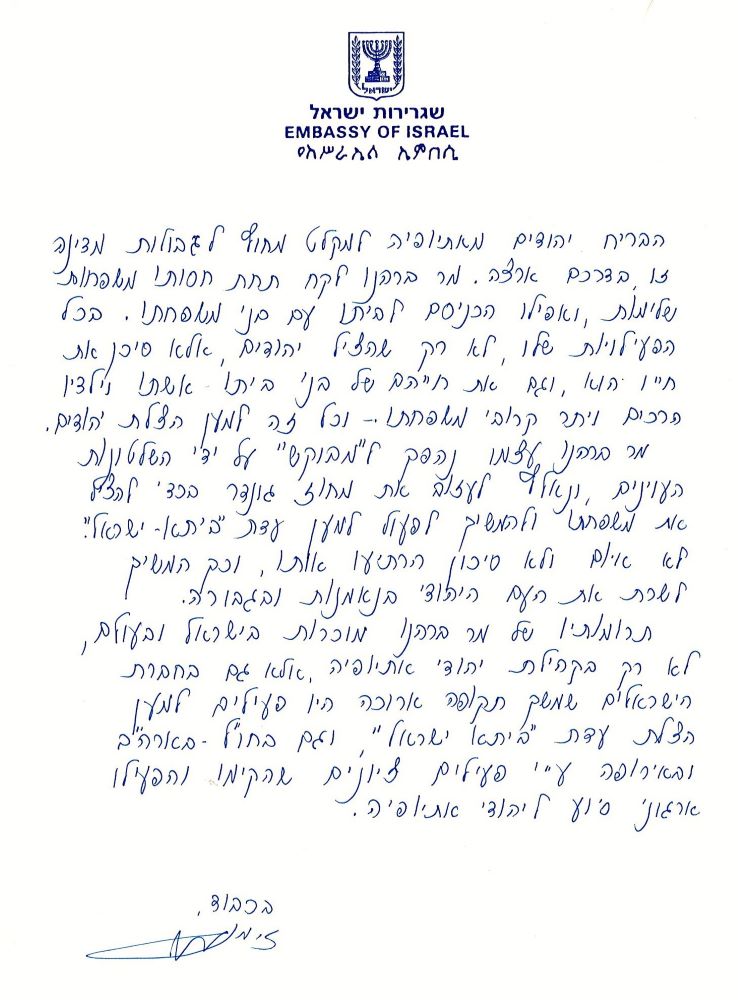 ישראל
שגרירות ישראל
EMBASSY OF ISRAEL
የእሥራኤል ኤምባሲ
הבריח יהודים מאתיופיה למקלט מחוץ לגבולות מדינה
זו, בדרכם ארצה. מר ברהנו לקח תחת חסותו משפחות
שלימות, ואפילו הכניסם לביתו עם בני משפחתו. בכל
הפעילויות שלו, לא רק שהציל יהודים, אלא סיכן את
חייו הוא, וגם את חייהם של בני ביתו - אשתו וילדיו
הרכים ויתר קרובי משפחתו - וכל זה למען הצלת יהודים.
מר ברהנו עצמו נהפך ל"מבוקש" על ידי השלטונות
העוינים, ונאלץ לעזוב את מחוז גונדר בכדי להציל
את משפחתו ולהמשיך לפעול למען עדת "ביתא-ישראל".
לא איום ולא סיכון הרתיעו אותו, וכך המשיך
לשרת את העם היהודי בנאמנות ובגבורה.
תרומותיו של מר ברהנו מוכרות בישראל ובעולם,
לא רק בקהילת יהודי אתיופיה, אלא גם בחברת
הישראלים שמשך תקופה ארוכה היו פעילים למען
הצלת עדת "ביתא ישראל", וגם בחו"ל - בארה"ב
ובאירופה ע"י פעילים ציונים שהקימו והפעילו
ארגוני סיוע ליהודי אתיופיה.
בכבוד,